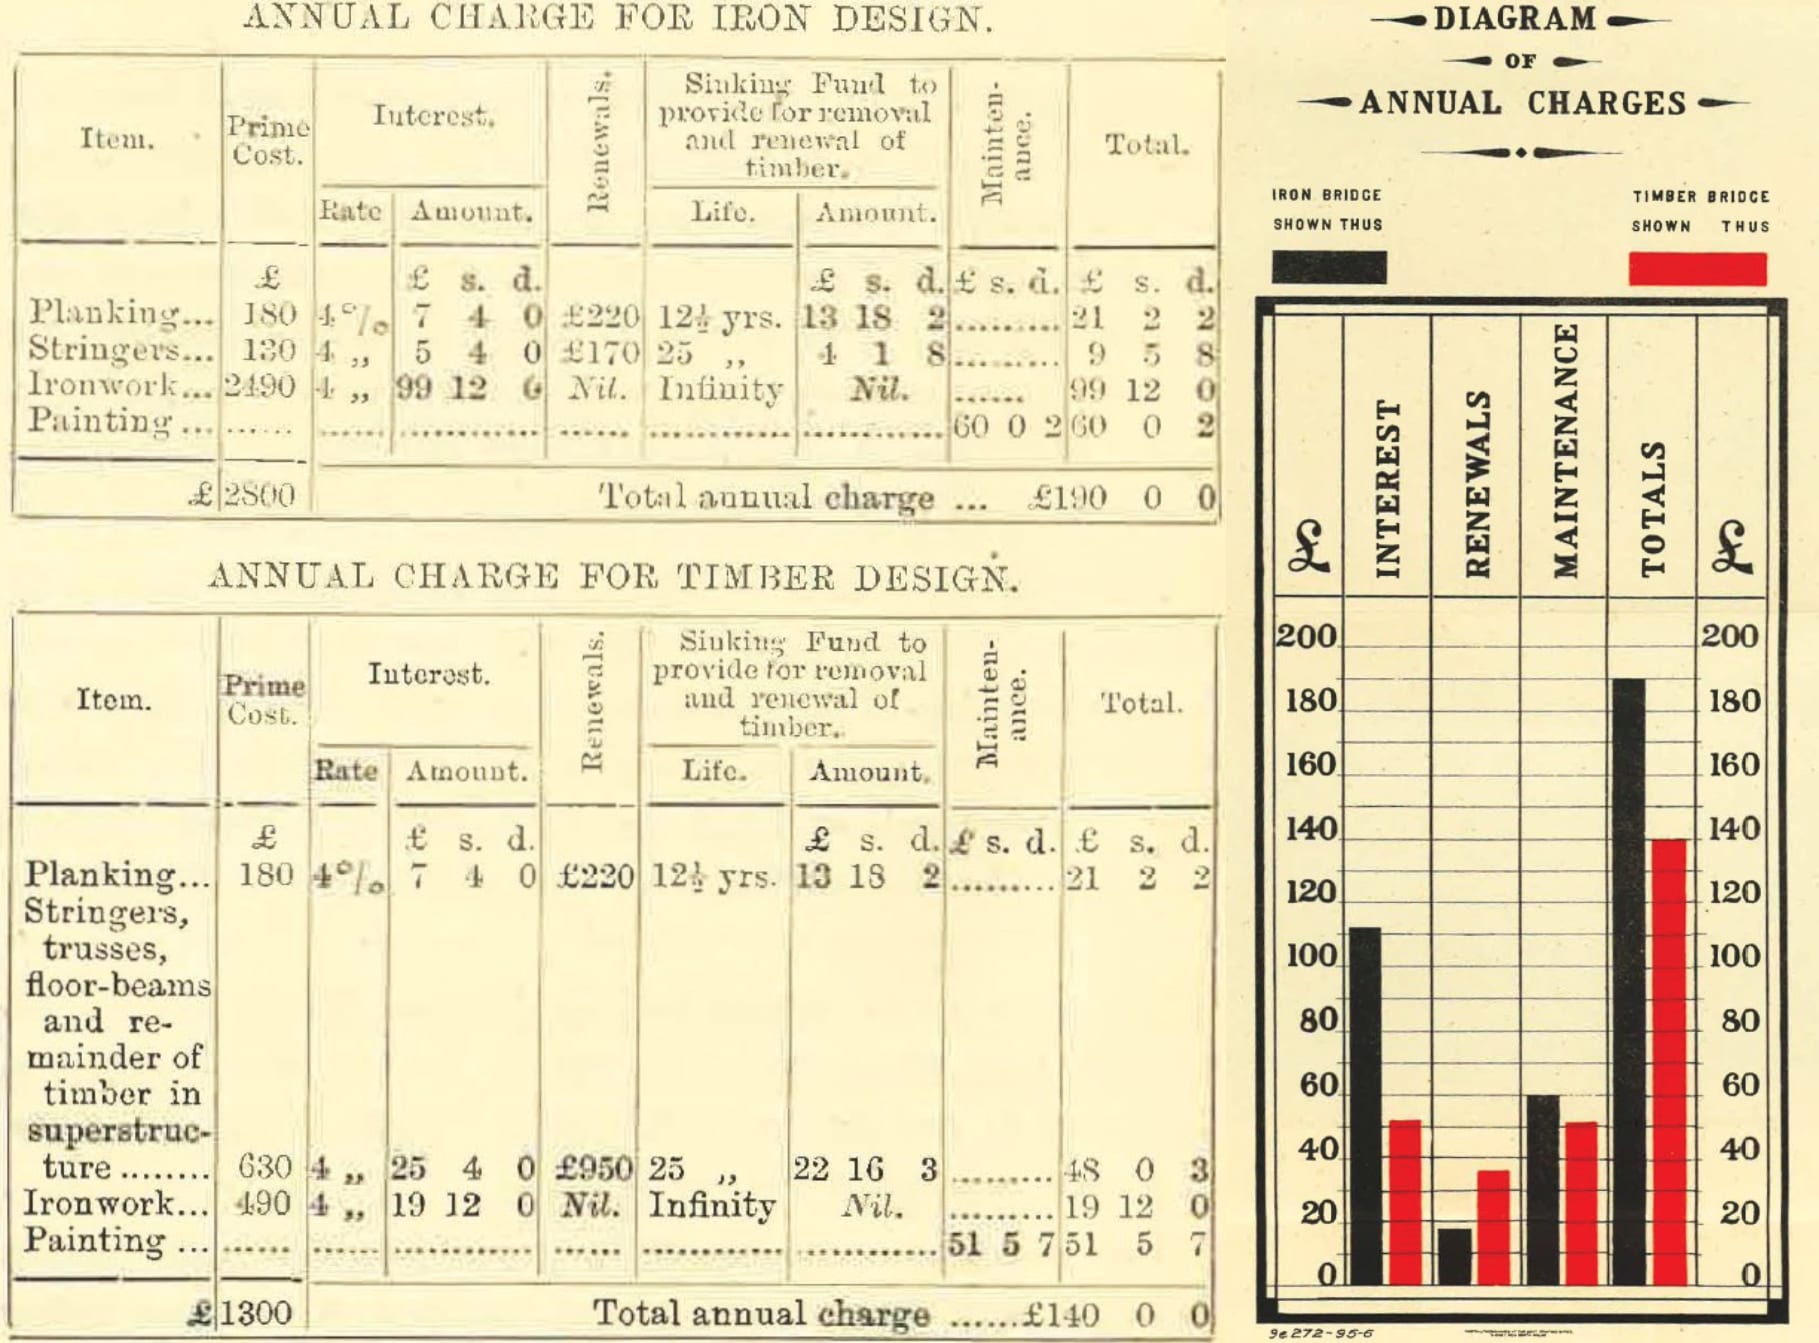 ANNUAL CHARGE FOR IRON DESIGN.
Item. Prime Cost. Interest. Renewals. Sinking Fund to provide for removal and renewal of timber. Mainten-ance. Total.
Rate Amount. Life. Amount.
£ £ s. d. £ s. d. £ s. d. £ s. d.
Planking... 180 4% 7 4 0 £220 12½ yrs. 13 18 2 ......... 21 2 2
Stringers... 130 4 „ 5 4 0 £170 25 „ 4 1 8 ......... 9 5 8
Ironwork... 2490 4 „ 99 12 0 Nil. Infinity Nil. ...... 99 12 0
Painting ... ...... ...... ............ ...... ............ ............ 60 0 2 60 0 2
£ 2800 Total annual charge ... £190 0 0
ANNUAL CHARGE FOR TIMBER DESIGN.
Item. Prime Cost. Interest. Renewals. Sinking Fund to provide for removal and renewal of timber. Mainten-ance. Total.
Rate Amount. Life. Amount.
£ £ s. d. £ s. d. £ s. d. £ s. d.
Planking... 180 4% 7 4 0 £220 12½ yrs. 13 18 2 ......... 21 2 2
Stringers,
trusses,
floor-beams
and re-
mainder of
timber in
superstruc-
ture ........ 630 4 „ 25 4 0 £950 25 „ 22 16 3 ......... 48 0 3
Ironwork... 490 4 „ 19 12 0 Nil. Infinity Nil. ......... 19 12 0
Painting ... ...... ...... ............ ...... ............ ............ 51 5 7 51 5 7
£ 1300 Total annual charge ......£140 0 0
DIAGRAM
OF
ANNUAL CHARGES
IRON BRIDGE
SHOWN THUS
TIMBER BRIDGE
SHOWN THUS
£ INTEREST RENEWALS MAINTENANCE TOTALS £
200 200
180 180
160 160
140 140
120 120
100 100
80 80
60 60
40 40
20 20
0 0
9e272-95-6